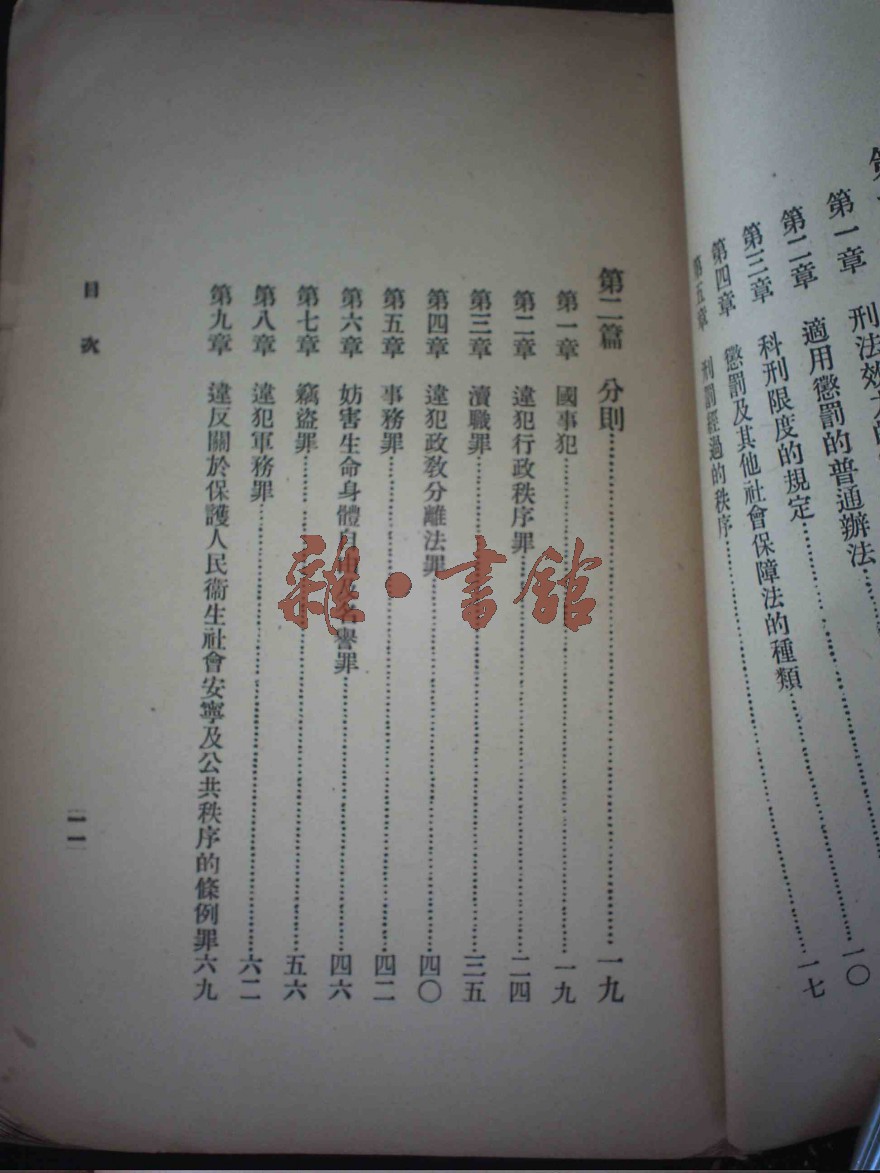 第一章 刑法效力的
第二章 適用懲罰的普通辦法
第三章 科刑限度的規定……一〇
第四章 懲罰及其他社會保障法的種類……
第五章 刑罰經過的秩序……一七
第二篇 分則……一九
第一章 國事犯……一九
第二章 違犯行政秩序罪……二四
第三章 瀆職罪……三五
第四章 違犯政教分離法罪……四〇
第五章 事務罪……四二
第六章 妨害生命身體自由及名譽罪……四六
第七章 竊盜罪……五六
第八章 違犯軍務罪……六二
第九章 違反關於保護人民衞生社會安寧及公共秩序的條例罪六九
目次
二
雜·書館